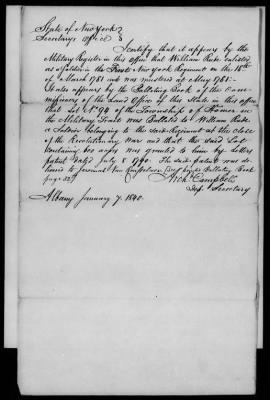 State of New York
Secretary's Office
I certify that it appears by the
Military Register in this office that William Rube enlisted
as a Soldier in the First New York Regiment on the 18th
of March 1781 and was mustered at May 1781.
It also appears by the Balloting Book of the Com-
missioners of the Land Office of this State in this office
that Lot No 94 of the Township of Homer in
the Military Tract was Balloted to William Rube
a Soldier belonging to the said Regiment at the close
of the Revolutionary War and that the said Lot
containing 600 acres was granted to him by Letters
patent dated July 8 1790. The said patent was de-
livered to Jeremiah Van Rensselaer
page
Arch. Campbell
Dep. Secretary
Albany January 7. 1840.